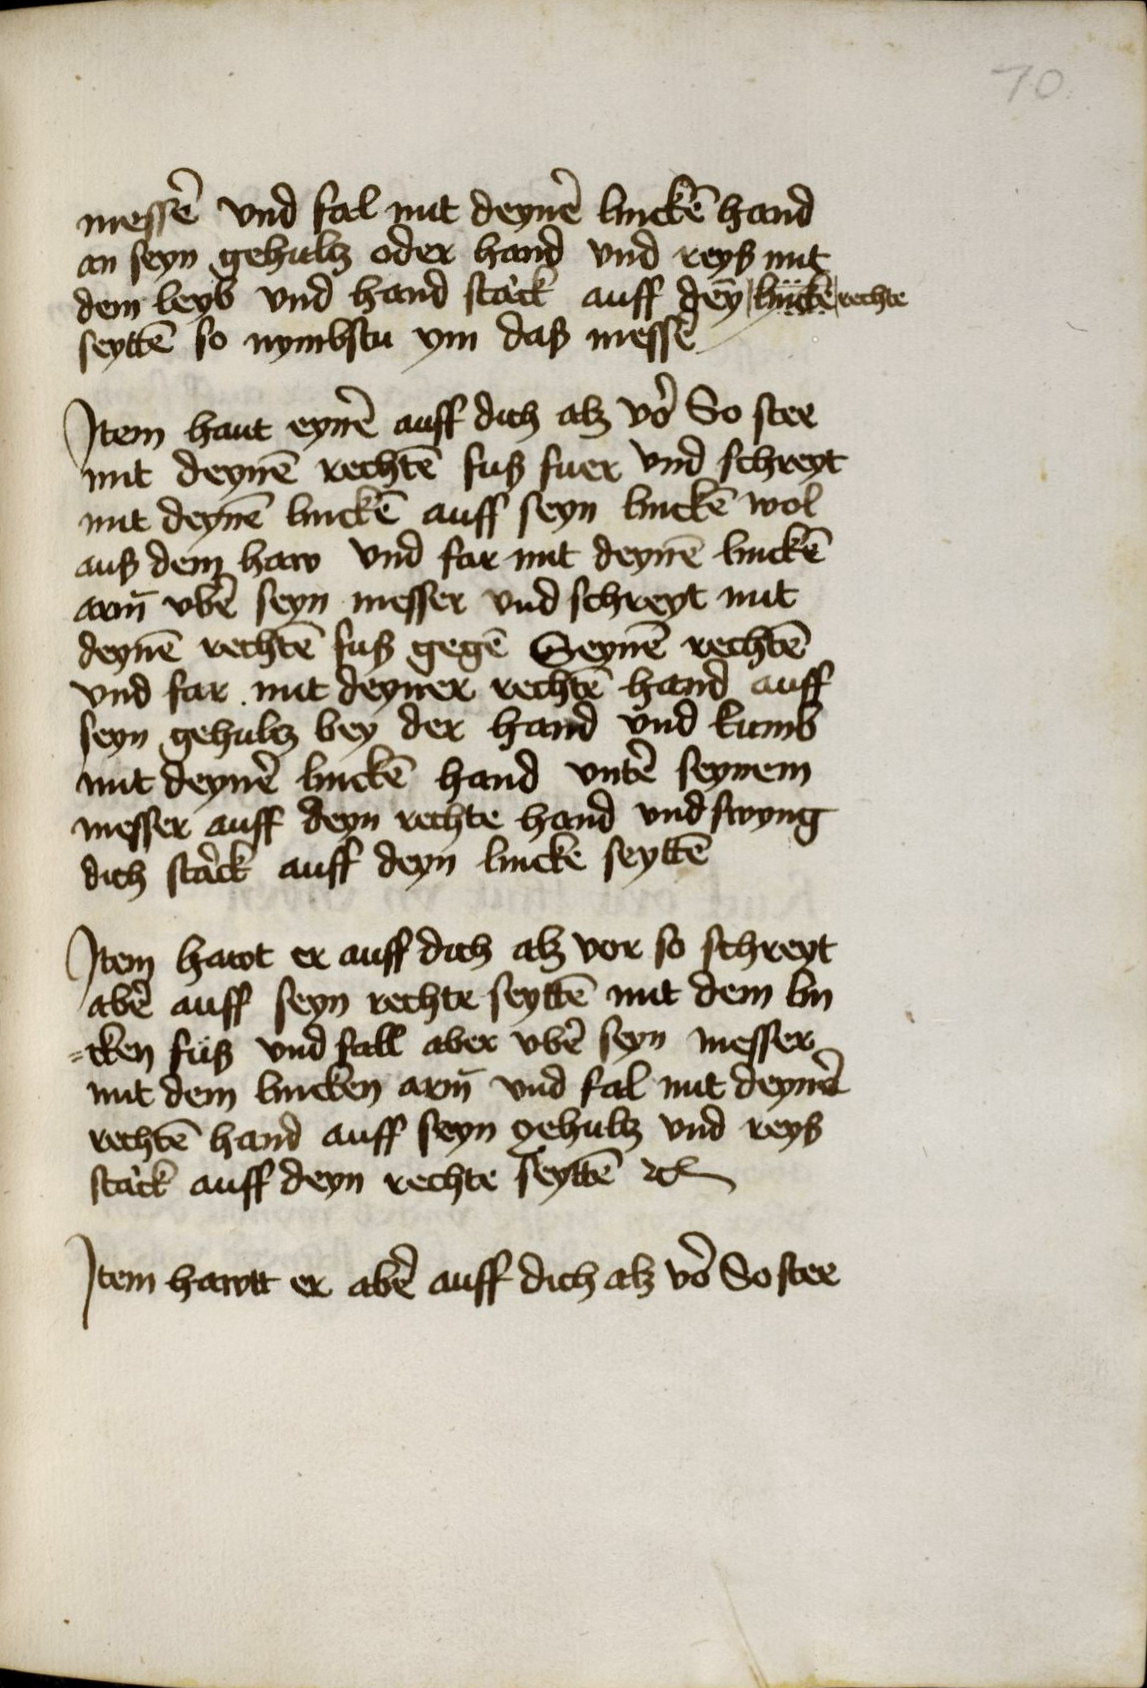 70
messẽ vnd fal mit deynẽ linckẽ hand
an seyn gehultz oder hand vnd reyß mit
dem leyb vnd hand starck auff dey̅ linckẽ rechte
seyttẽ so nymbstu ym daß messẽ
Item haut eynẽ auff dich alß vo᷑ So stee
mit deynẽ rechtẽ fuß fuer vnd schreyt
mit deynẽ linckẽ auff seyn linckẽ wol
auß dem haw vnd far mit deynẽ linckẽ
arm̃ vbẽ seyn messer vnd schreyt mit
deynẽ rechtẽ fuß gegẽ Seynẽ rechtẽ
vnd far mit deyner rechtẽ hand auff
seyn gehultz bey der hand vnd kumb
mit deynẽ linckẽ hand vntẽ seynem
messer auff deyn rechte hand vnd swyng
dich sta᷑ck auff deyn lincke seyttẽ
Item hawt er auff dich alß vor so schreyt
abẽ auff seyn rechte seyttẽ mit dem lin
=cken füß vnd fall aber vbẽ seyn messer
mit dem lincken arm̃ vnd fal mit deynẽ
rechtẽ hand auff seyn gehultz vnd reyß
sta᷑ck auff deyn rechte seyttẽ ꝛc
Item hawtt er abẽ auff dich alß vo᷑ So stee